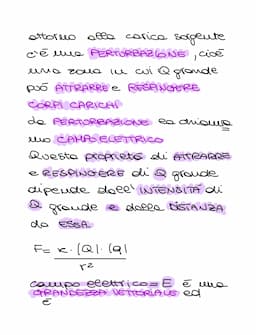 attorno alla carica sorgente
c'è una PERTURBAZIONE, cioè
una zona in cui Q grande
può ATTRARRE e RESPINGERE
CORPI CARICHI
la PERTURBAZIONE la chiamo
un CAMPO ELETTRICO
Questa proprietà di ATTRARRE
e RESPINGERE di Q grande
dipende dall'INTENSITÀ di
Q grande e dalla DISTANZA
da ESSA.
F= K · |Q| · |q|
r²
campo elettrico = E è una
GRANDEZZA VETTORIALE ed
è